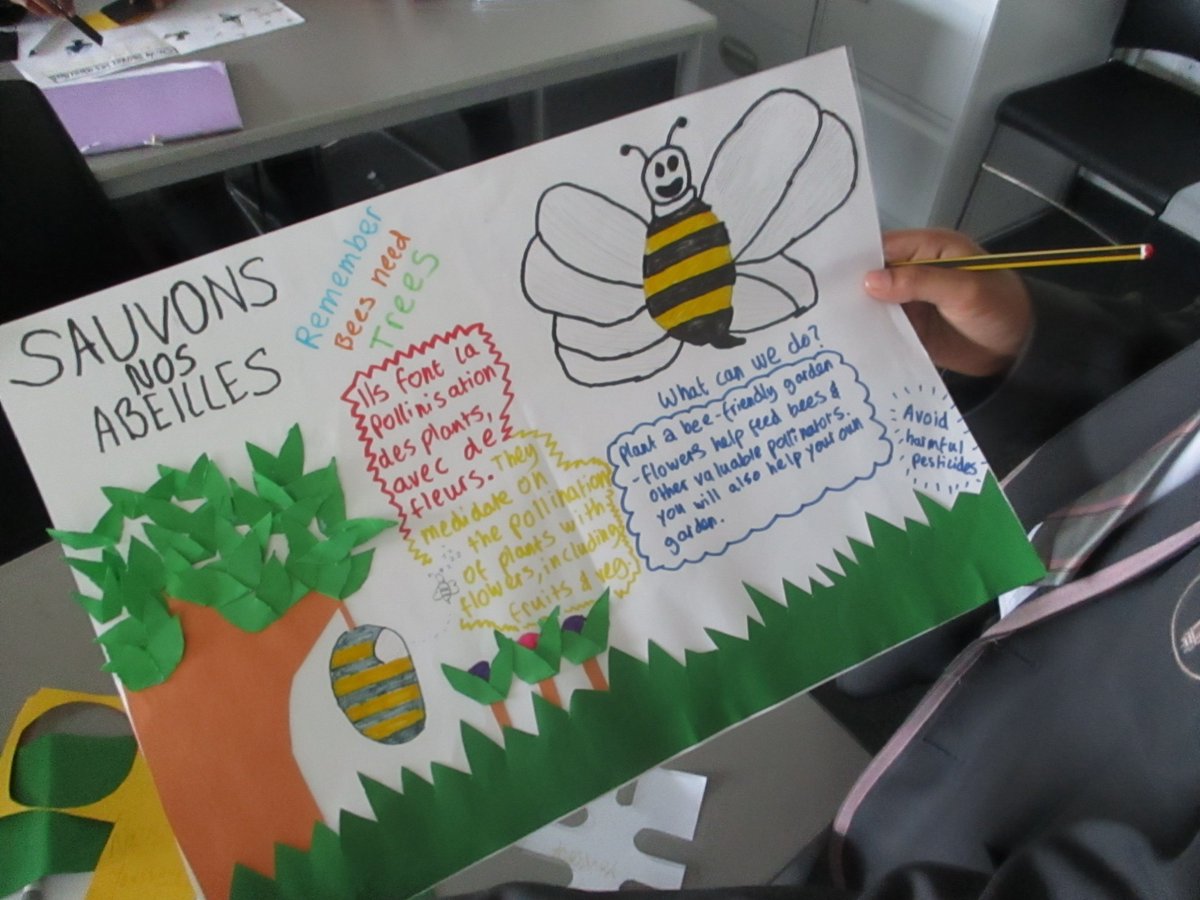 SAUVONS
NOS
ABEILLES
Remember
Bees need
Trees
Ils font la
pollinisation
des plants,
avec de
fleurs.
They
medidate on
the pollination
of plants with
flowers, including
fruits & veg.
What can we do?
Plant a bee-friendly garden
- flowers help feed bees &
other valuable pollinators.
You will also help your own
garden.
Avoid
harmful
pesticides